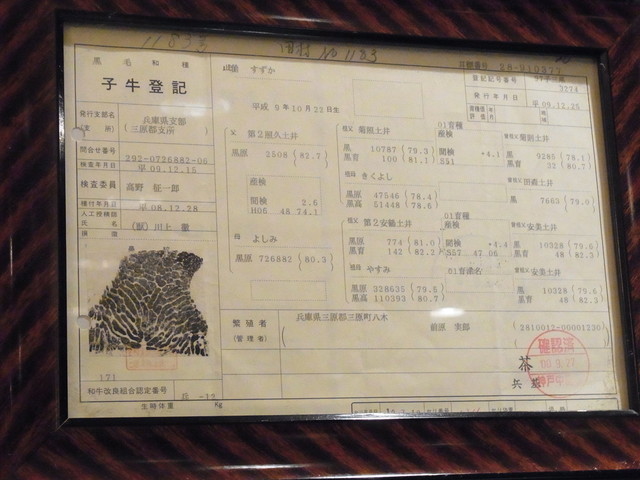 11833 田村 No 1183
黒毛和種
子牛登記
発行支部名(支所) 兵庫県支部 三原郡支所
問合せ番号 292-0726882-06
検査年月日 平 09.12.15
検査委員 高野 征一郎
種付年月日 平 08.12.28
人工授精師氏名 (獣) 川上
171
和牛改良組合認定番号
生時体重 Kg
すずか
平成 9年10月22日生
登記記号番号 3274
発行年月日 平 09.12.25
父 第2照久土井
黒原 2508 (82.7)
産検
間検 2.6
H05 48 74.1
母 よしみ
黒原 726882 (80.3)
祖父 菊照土井 01育種
黒 10787 (79.3)
黒育 100 (81.1)
産検
間検 +4.1
S51
祖母 きくよし
黒原 47546 (78.4)
黒高 51448 (78.6)
祖父 第2安鶴土井 01育種
黒原 774 (81.0)
黒育 142 (82.2)
産検
間検 +4.4
S57 47.06
祖母 やすみ
黒原 328635 (79.5)
黒高 110393 (80.7)
曾祖父 菊則土井
黒 9285 (78.1)
黒育 32 (80.7)
曾祖父 田森土井
黒 7663 (79.0)
曾祖父 安美土井
黒 10328 (79.6)
黒育 48 (82.3)
曾祖父 安美土井
黒 10328 (79.6)
黒育 48 (82.3)
繁殖者(管理者) 兵庫県三原郡三原町八木
前原 実郎 (2810012-00001230)
確認済
茶
兵